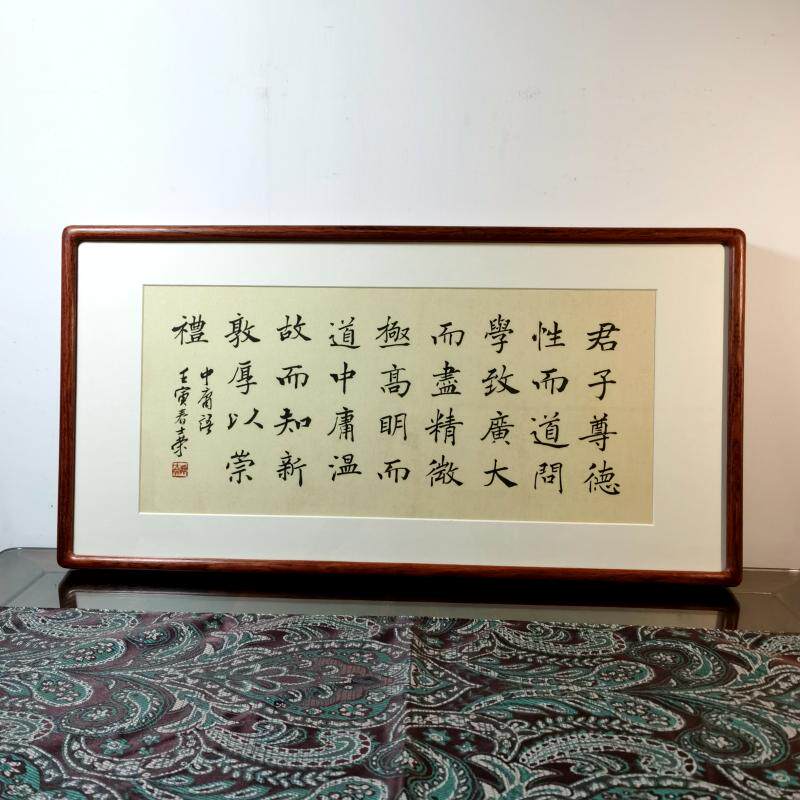 君子尊德
性而道問
學致廣大
而盡精微
極高明而
道中庸溫
故而知新
敦厚以崇
禮
中庸語
壬寅春士榮